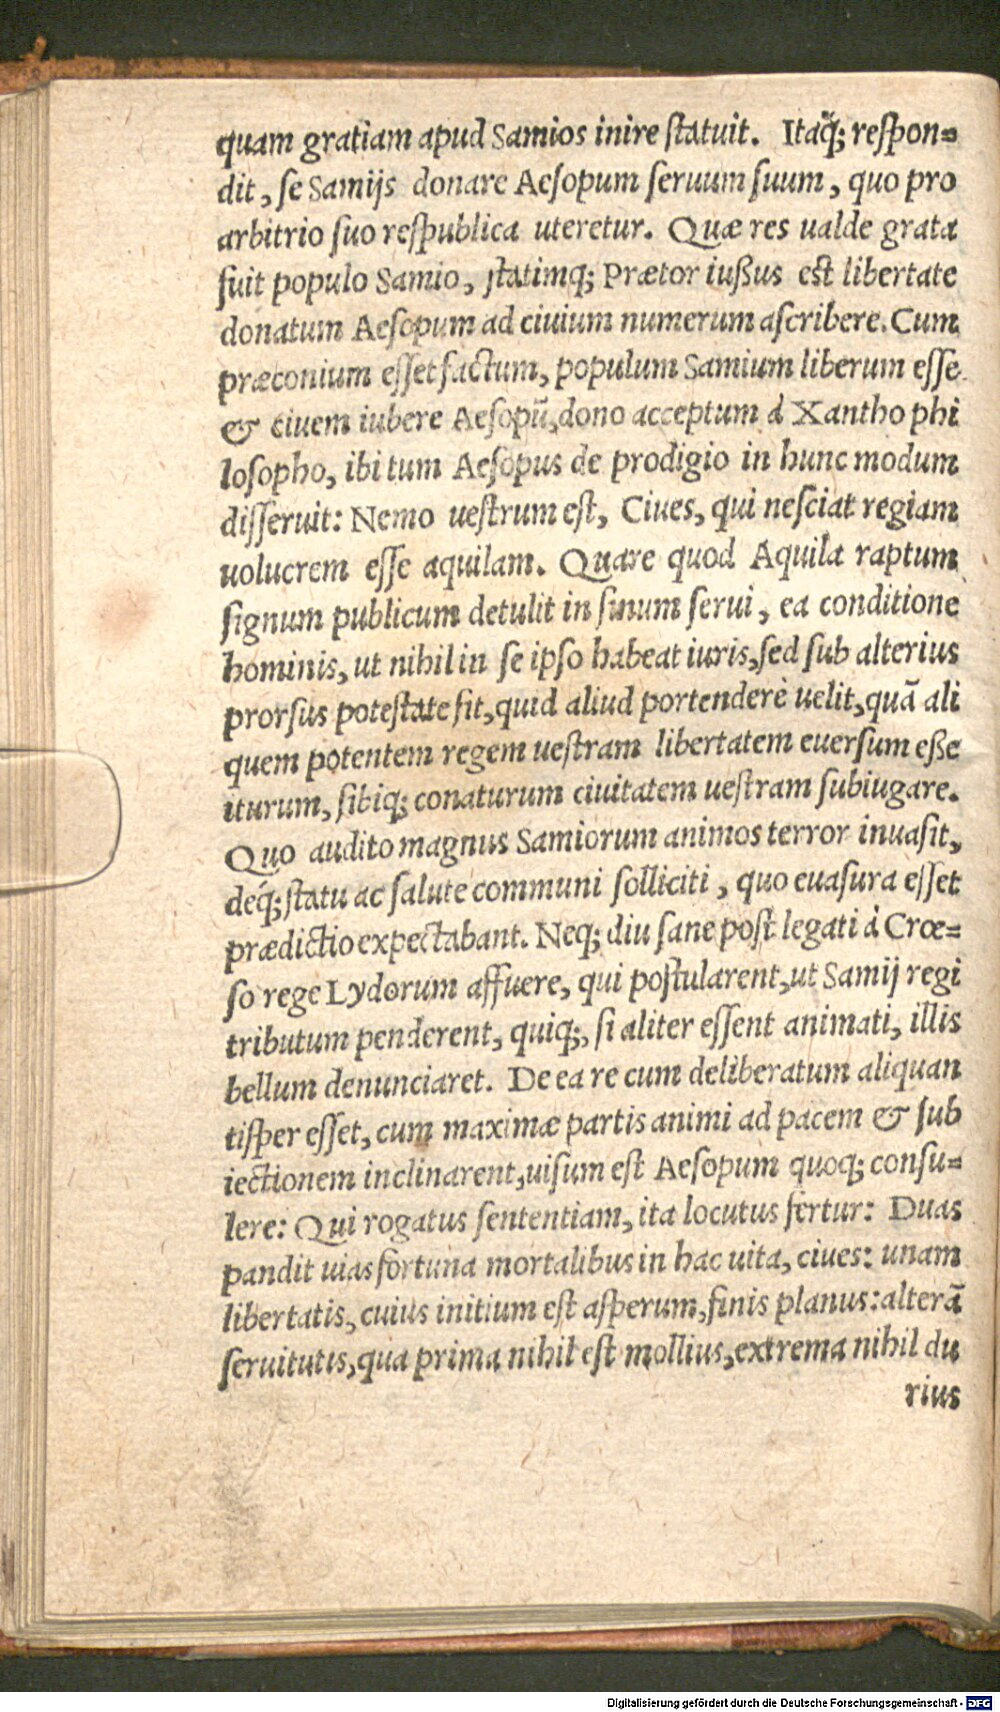 quam gratiam apud Samios inire ſtatuit. Itaq́; reſpon=
dit, ſe Samijs donare Aeſopum ſeruum ſuum, quo pro
arbitrio ſuo reſpublica uteretur. Quæ res ualde grata
fuit populo Samio, ſtatimq; Prætor iußus eſt libertate
donatum Aeſopum ad ciuium numerum aſcribere. Cum
præconium eſſet factum, populum Samium liberum eſſe
& ciuem iubere Aeſopũ, dono acceptum à Xantho phi
loſopho, ibi tum Aeſopus de prodigio in hunc modum
diſſeruit: Nemo ueſtrum eſt, Ciues, qui neſciat regiam
uolucrem eſſe aquilam. Quare quod Aquila raptum
ſignum publicum detulit in ſinum ſerui, ea conditione
hominis, ut nihil in ſe ipſo habeat iuris, ſed ſub alterius
prorſus poteſtate ſit, quid aliud portendere uelit, quã ali
quem potentem regem ueſtram libertatem euerſum eße
iturum, ſibiq; conaturum ciuitatem ueſtram ſubiugare.
Quo audito magnus Samiorum animos terror inuaſit,
deq́; ſtatu ac ſalute communi ſolliciti, quo euaſura eſſet
prædictio expectabant. Neq; diu ſane poſt legati à Crœ=
ſo rege Lydorum affuere, qui poſtularent, ut Samij regi
tributum penderent, quiq;, ſi aliter eſſent animati, illis
bellum denunciaret. De ea re cum deliberatum aliquan
tiſper eſſet, cum maximæ partis animi ad pacem & ſub
iectionem inclinarent, uiſum eſt Aeſopum quoq; conſu=
lere: Qui rogatus ſententiam, ita locutus fertur: Duas
pandit uias fortuna mortalibus in hac uita, ciues: unam
libertatis, cuius initium eſt aſperum, finis planus: alterã
ſeruitutis, qua prima nihil eſt mollius, extrema nihil du
rius
Digitalisierung gefördert durch die Deutsche Forschungsgemeinschaft - DFG